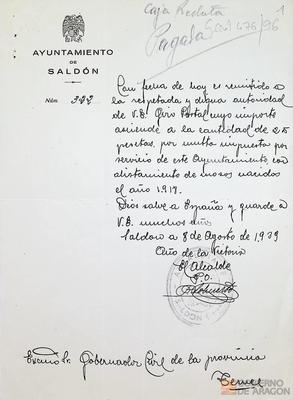 Caja Recluta
1
Pagada
476/96
AYUNTAMIENTO
DE
SALDÓN
Núm. 392
Con fecha de hoy es remitido a
la respetada y digna autoridad
de V.E. Giro Postal cuyo importe
asciende a la cantidad de 25
pesetas, por multa impuesta por
servicio de este Ayuntamiento, con
alistamiento de mozos nacidos
el año 1917.
Dios salve a España y guarde a
V.E. muchos años.
Saldón a 8 de Agosto de 1939
Año de la Victoria
El Alcalde
P.O.
Excmo Sr. Gobernador Civil de la provincia
Teruel
GOBIERNO
DE ARAGON